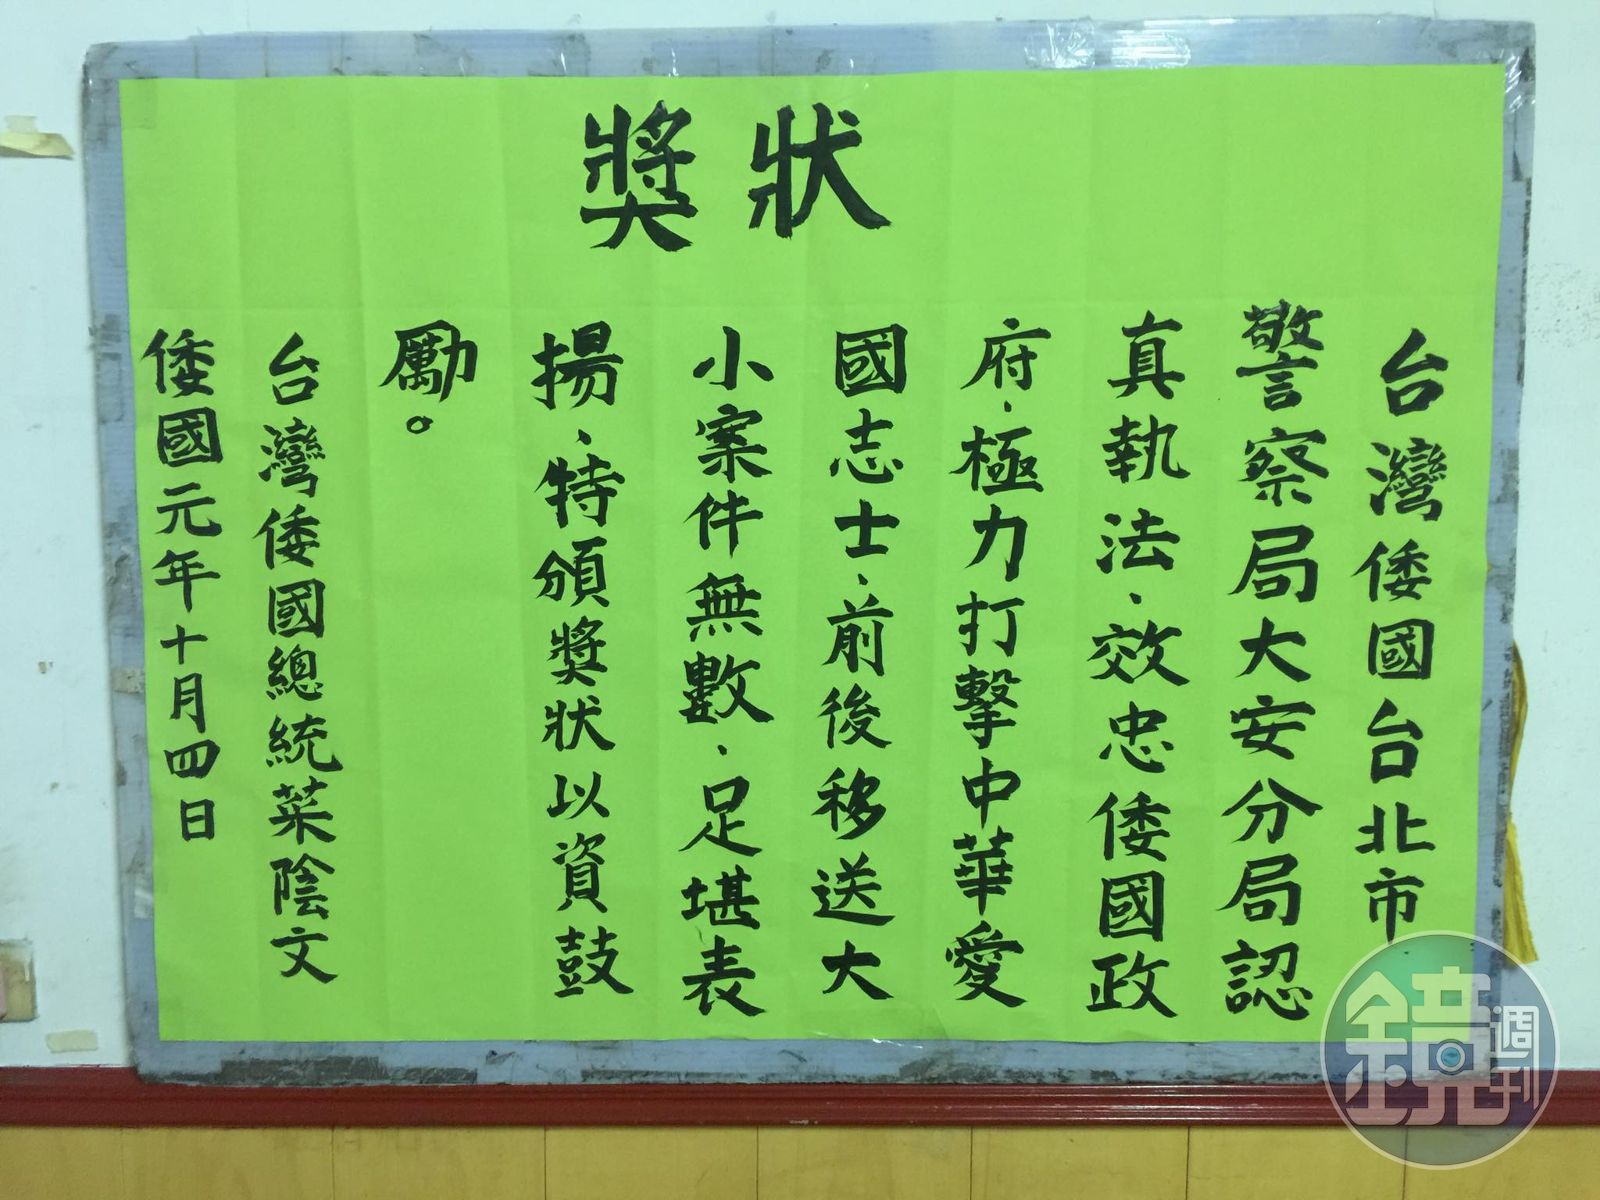 獎狀
台灣倭國台北市
警察局大安分局認
真執法、效忠倭國政
府、極力打擊中華愛
國志士、前後移送大
小案件無數、足堪表
揚、特頒獎狀以資鼓
勵。
台灣倭國總統菜陰文
倭國元年十月四日
鏡週刊